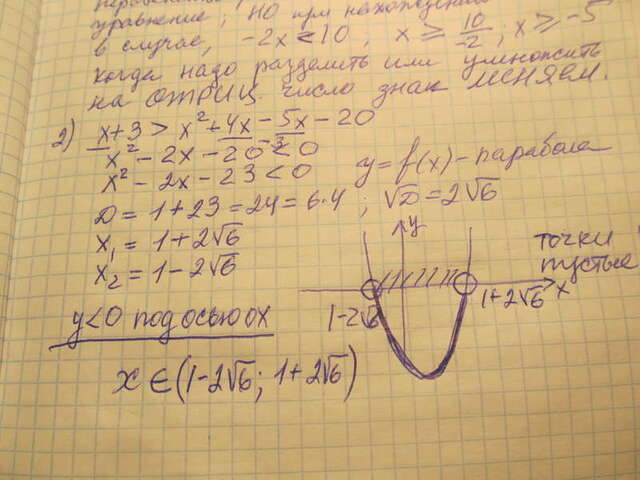 уравнение; но при нахождении
в случае, -2x < 10, x ≥ 10/-2; x ≥ -5
когда надо разделить или умножить
на ОТРИЦ. число знак МЕНЯЕМ.
2) x+3 > x²+4x-5x-20
x²-2x-20-3<0
x²-2x-23<0
y=f(x)-парабола
D=1+23=24=6·4; √D=2√6
x₁=1+2√6
x₂=1-2√6
y
точки
пустые
x
1-2√6
1+2√6
y<0 под осью ox
x∈(1-2√6; 1+2√6)